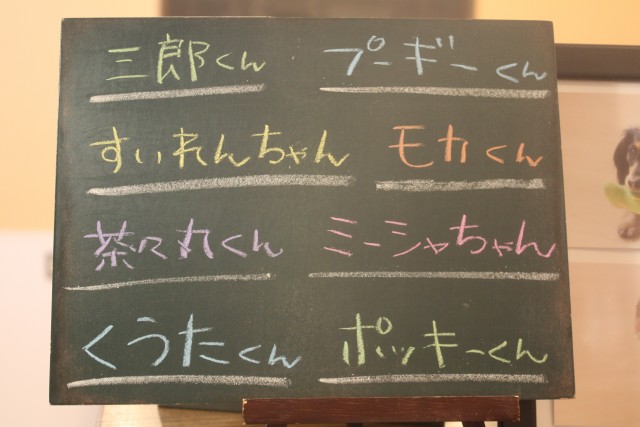 三郎くん プーギーくん
すいれんちゃん モカくん
茶々丸くん ミーシャちゃん
くうたくん ポッキーくん